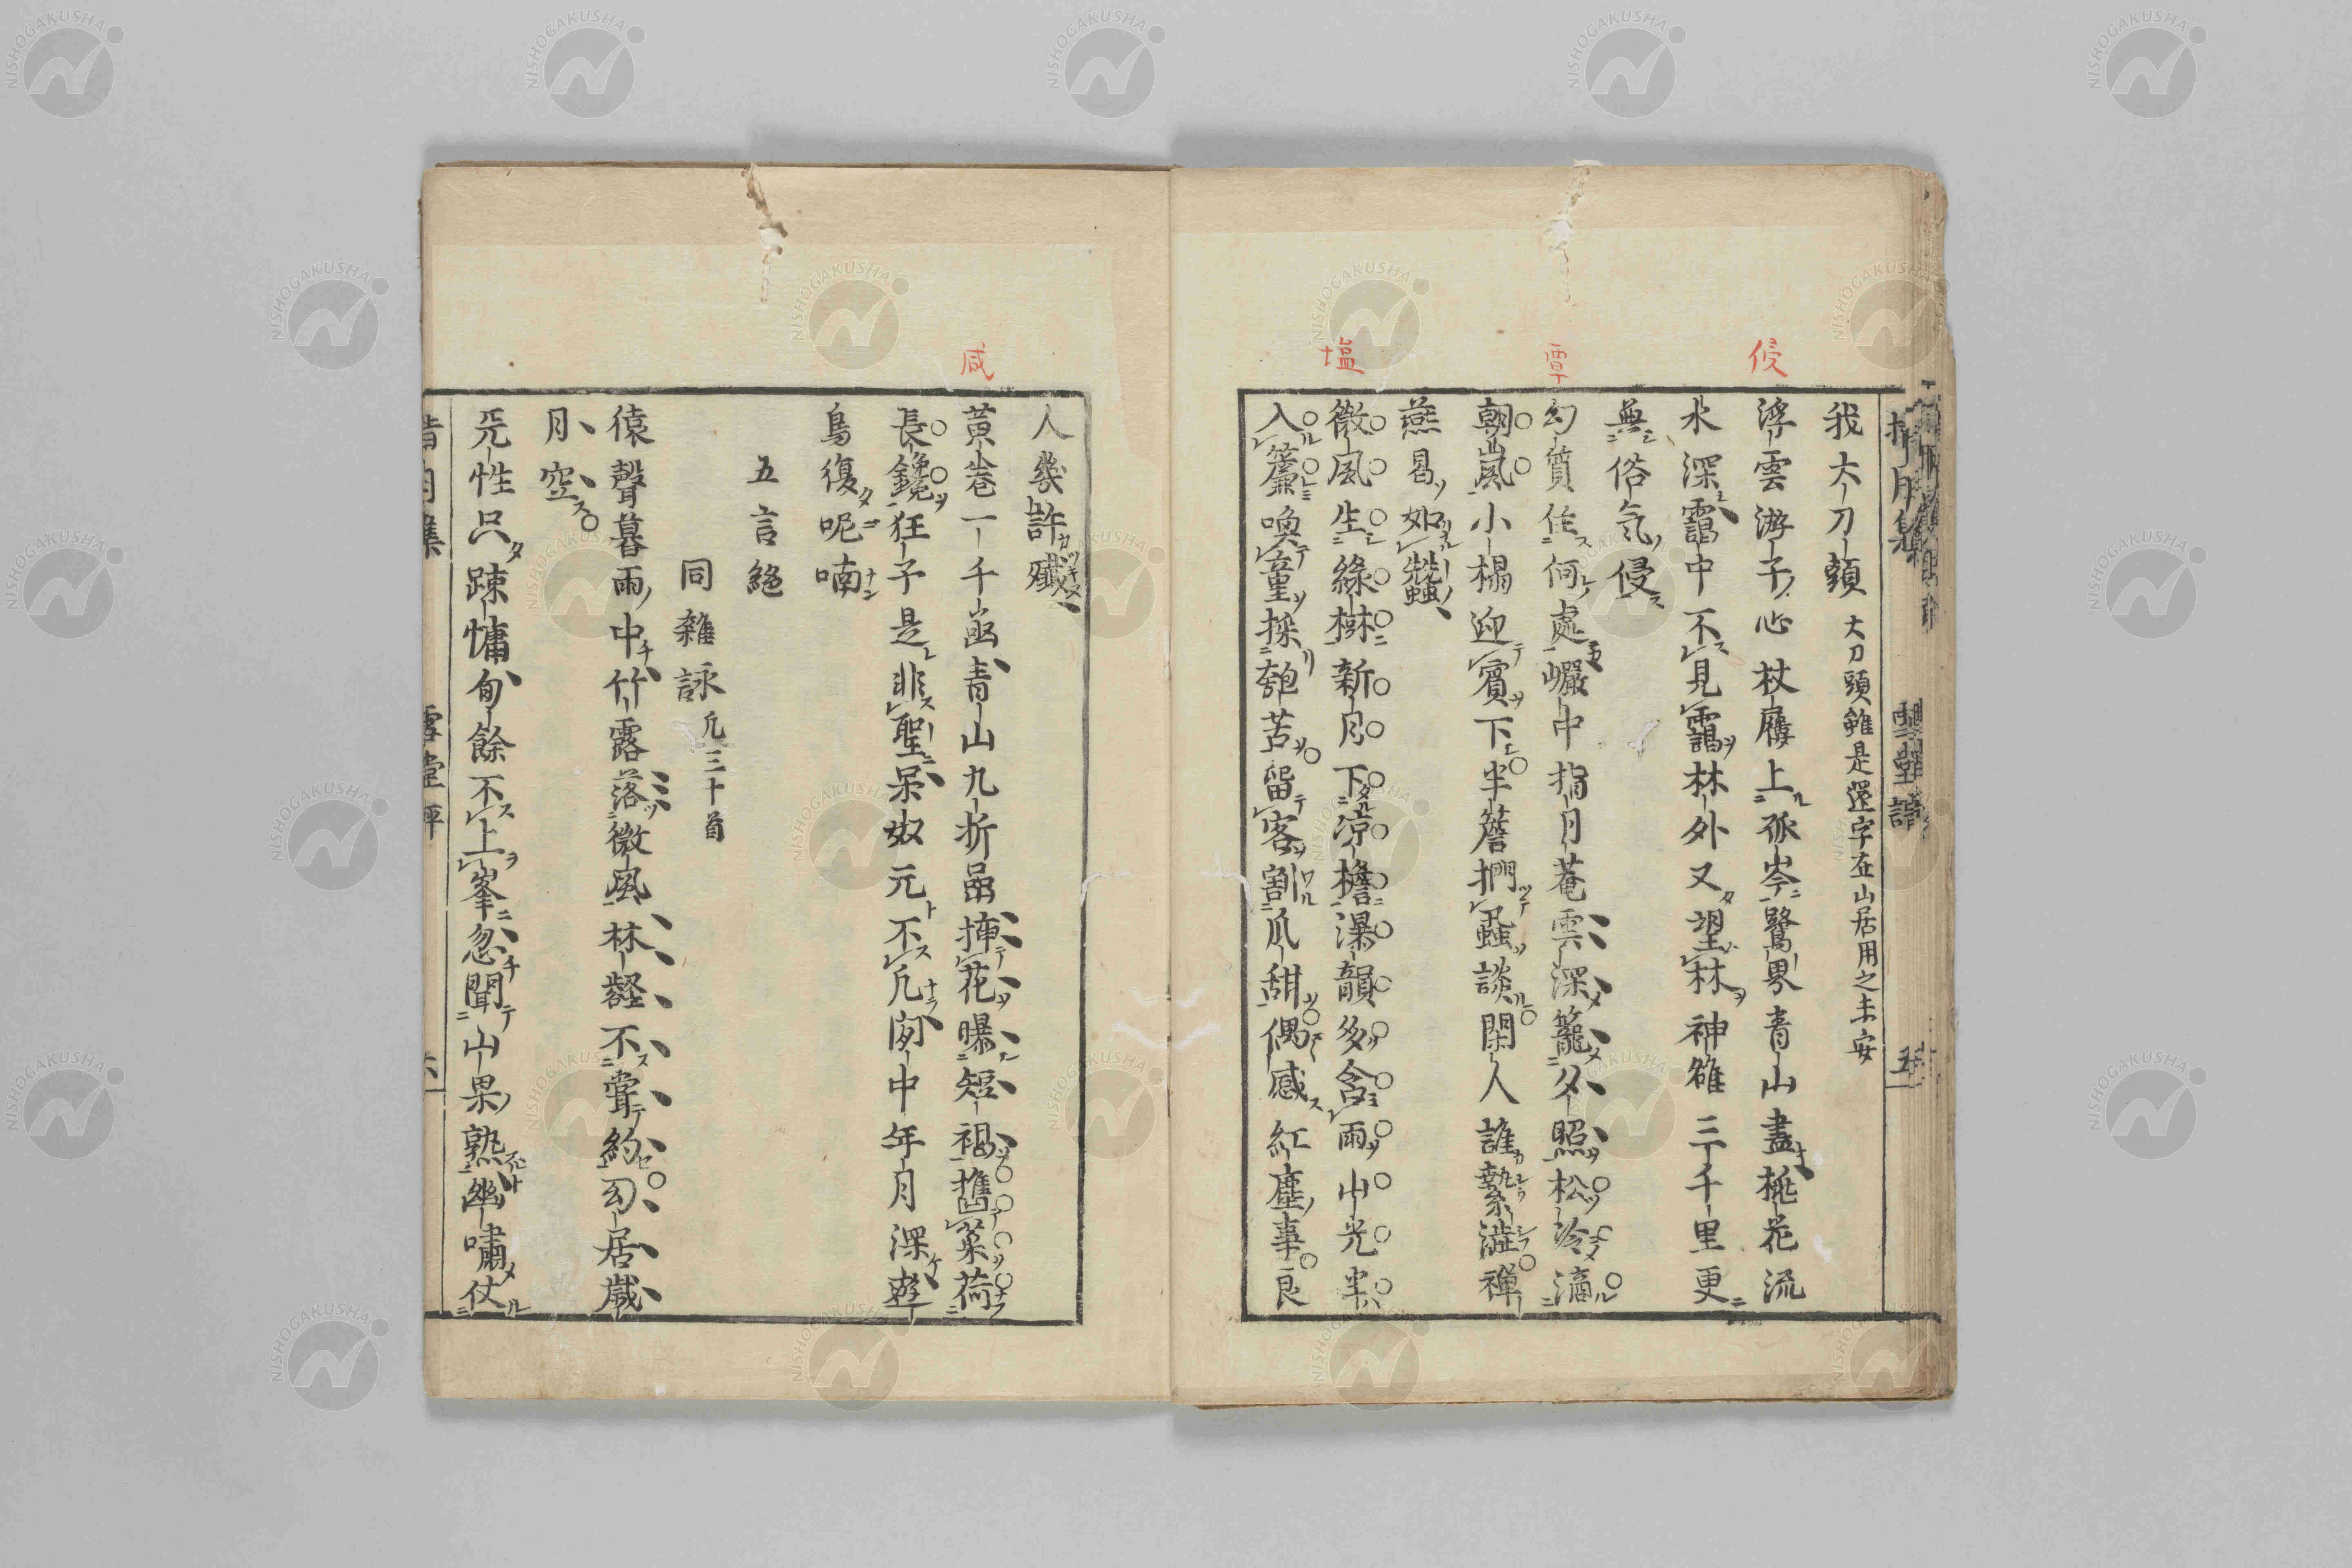 我大刀頭 大刀頭雖是還字在山居用之未安
侵
浮雲游子心杖屨上孤岑鷺界青山盡桃花流
水深靄中不見靄林外又望林神雒三千里更
無俗気侵
覃
幻質住何處巗中搊月菴雲深籠夕照松冷滴
朝嵐小榻迎賓下半簷捫虱談閑人誰縶澁禪
燕曷如蠶
塩
微風生綠樹新月下凉檐瀑韻多含雨山光半
入簾喚童採匏苦留客割瓜甜偶感紅塵事良
人幾許殲
咸
黄巻一千凾青山九折嵒揷花曝短褐携菜荷
長鑱狂子是非聖呆奴元不凡閑中年月深遊
鳥復呢喃
五言絶
同雜詠 凡三十首
猿聲暮雨中竹露落微風林壑不甞約幻居嵗
月空
兀性只踈慵旬餘不上峯忽聞山果熟幽嘯仗
五
NISHOGAKUSHA